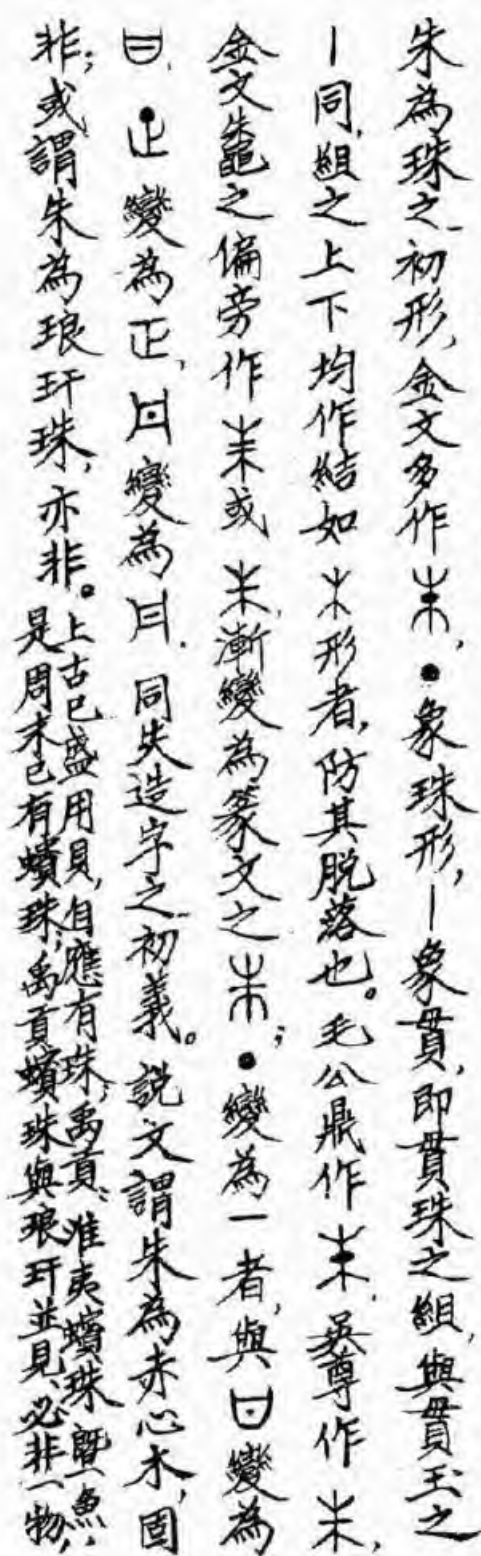 朱為珠之初形，金文多作，●象珠形，丨象貫，即貫珠之組，與貫玉之
丨同，組之上下均作結如形者，防其脫落也。毛公鼎作，尊作，
金文鼄之偏旁作或，漸變為篆文之；●變為一者，與變為
，變為正，變為，同失造字之初義。說文謂朱為赤心木，固
非；或謂朱為琅玕珠，亦非。
上古已盛用貝，自應有珠；禹貢：淮夷蠙珠暨魚，
是周末已有蠙珠；禹貢蠙珠與琅玕並見、必非一物，